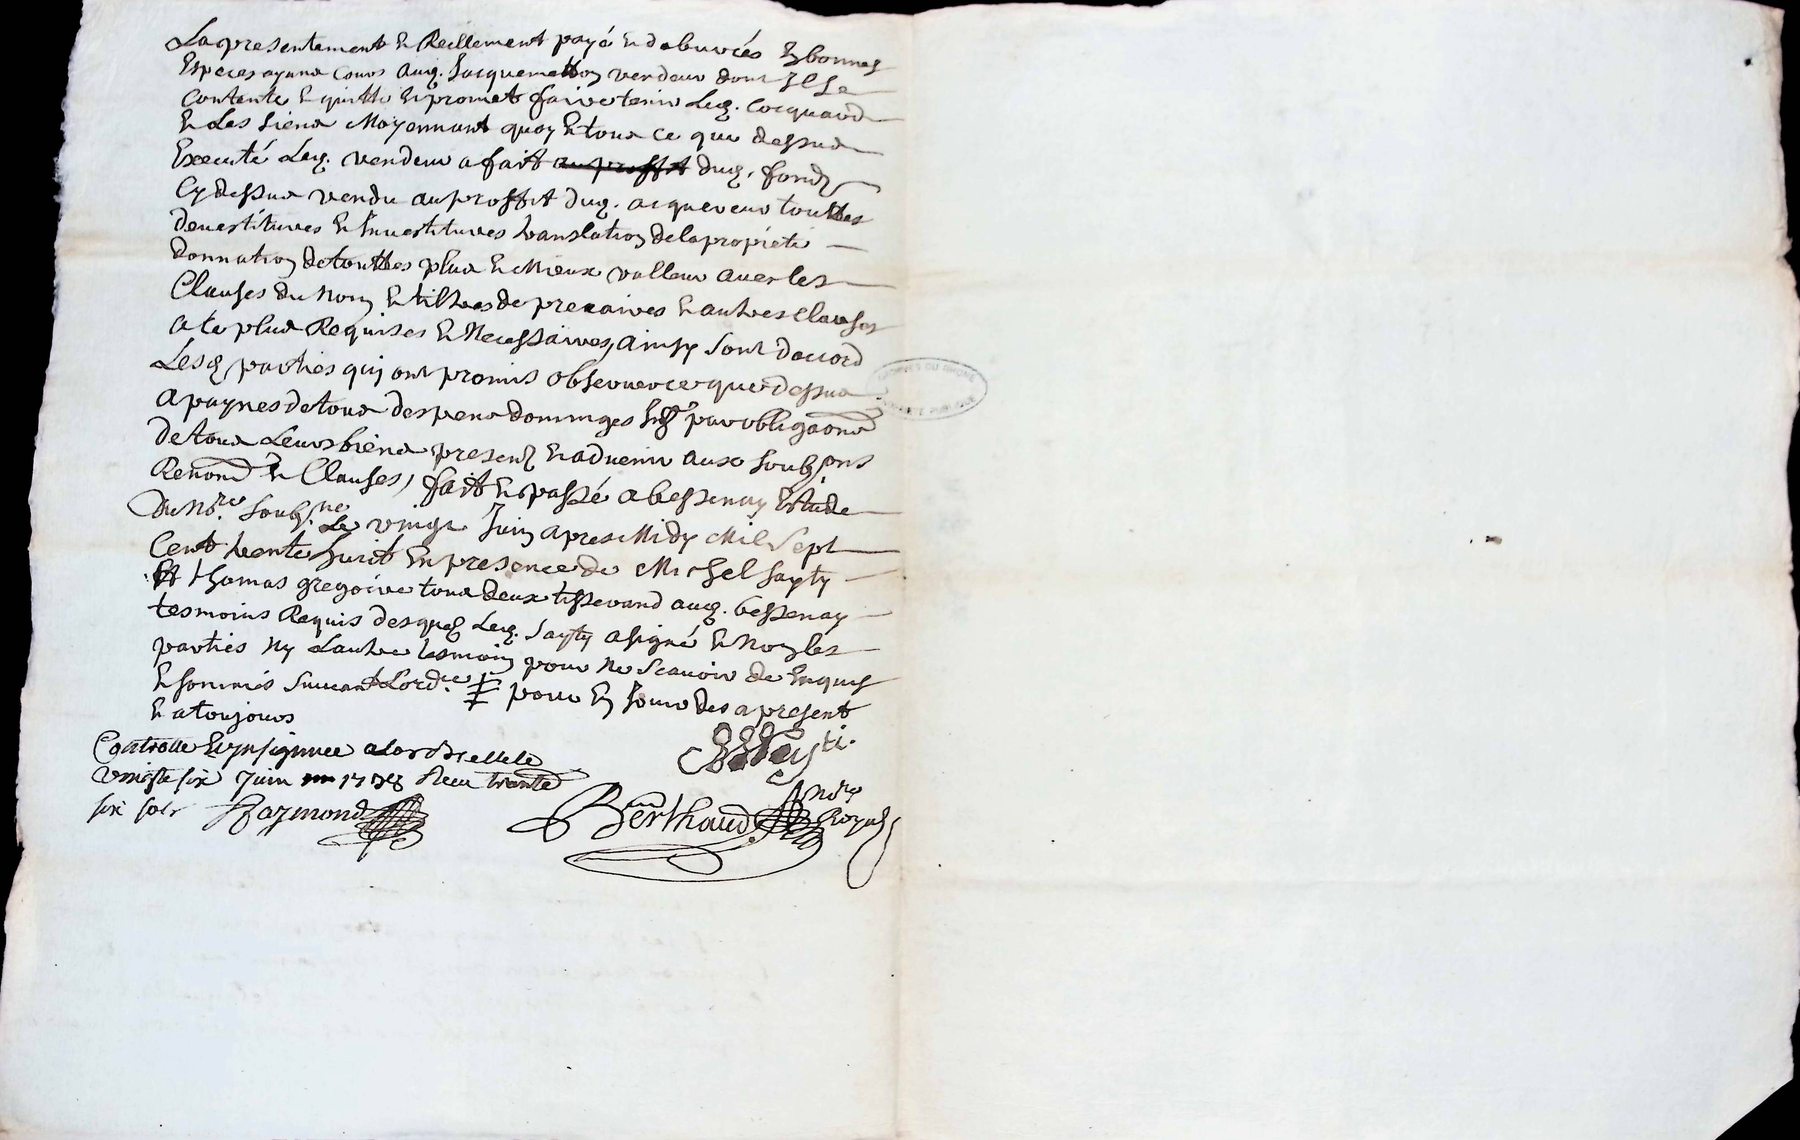 La presentement & Reellement payé & debourcés En bonnes
Especes ayans Cours aud. Jacquemetton vendeur dont Il Se
Contente & quitte & promet faire tenir Led. Cocquard
& Les Siens Moyennant quoy & tous ce que dessus
Executé Led. vendeur a fait dud. fond
Cy dessus vendu au proffit dud. acquereur touttes
devestitures & Investitures translation de la propieté
donnation de touttes plus & Mieux valleur avec les
Clauses du Nom & tiltres de precaires & autres Clauses
a ce plus Requises & Necessaires, ainsy Sont d'accord
Lesd parties qui ont promis observer ce que dessus
a paynes de tous despens dommages Inst par obligaons
de tous Leurs biens presens & advenir aux soubsons
Renonons & Clauses, fait & passé a bessenay Etude
du Nore. Soubsné. Le vingt Juin apres Midy Mil Sept
Cent trente huit En presence de Michel Sayty
Et thomas gregoire tous deux tisserand aud. bessenay
tesmoins Requis desquels Led. Sayty a signé & Non les
parties Ny L'autre tesmoin pour Ne Scavoir de Enquis
& sommés Suivant L'ordce. pour En Jouir des a present
& a toujours
Controllé & ynsignuee a Larbrelle le
vingt six Juin 1738 Receu trente
six sols Raymond
Sayti.
Berthaud Nore Royal
ARCHIVES DU RHONE